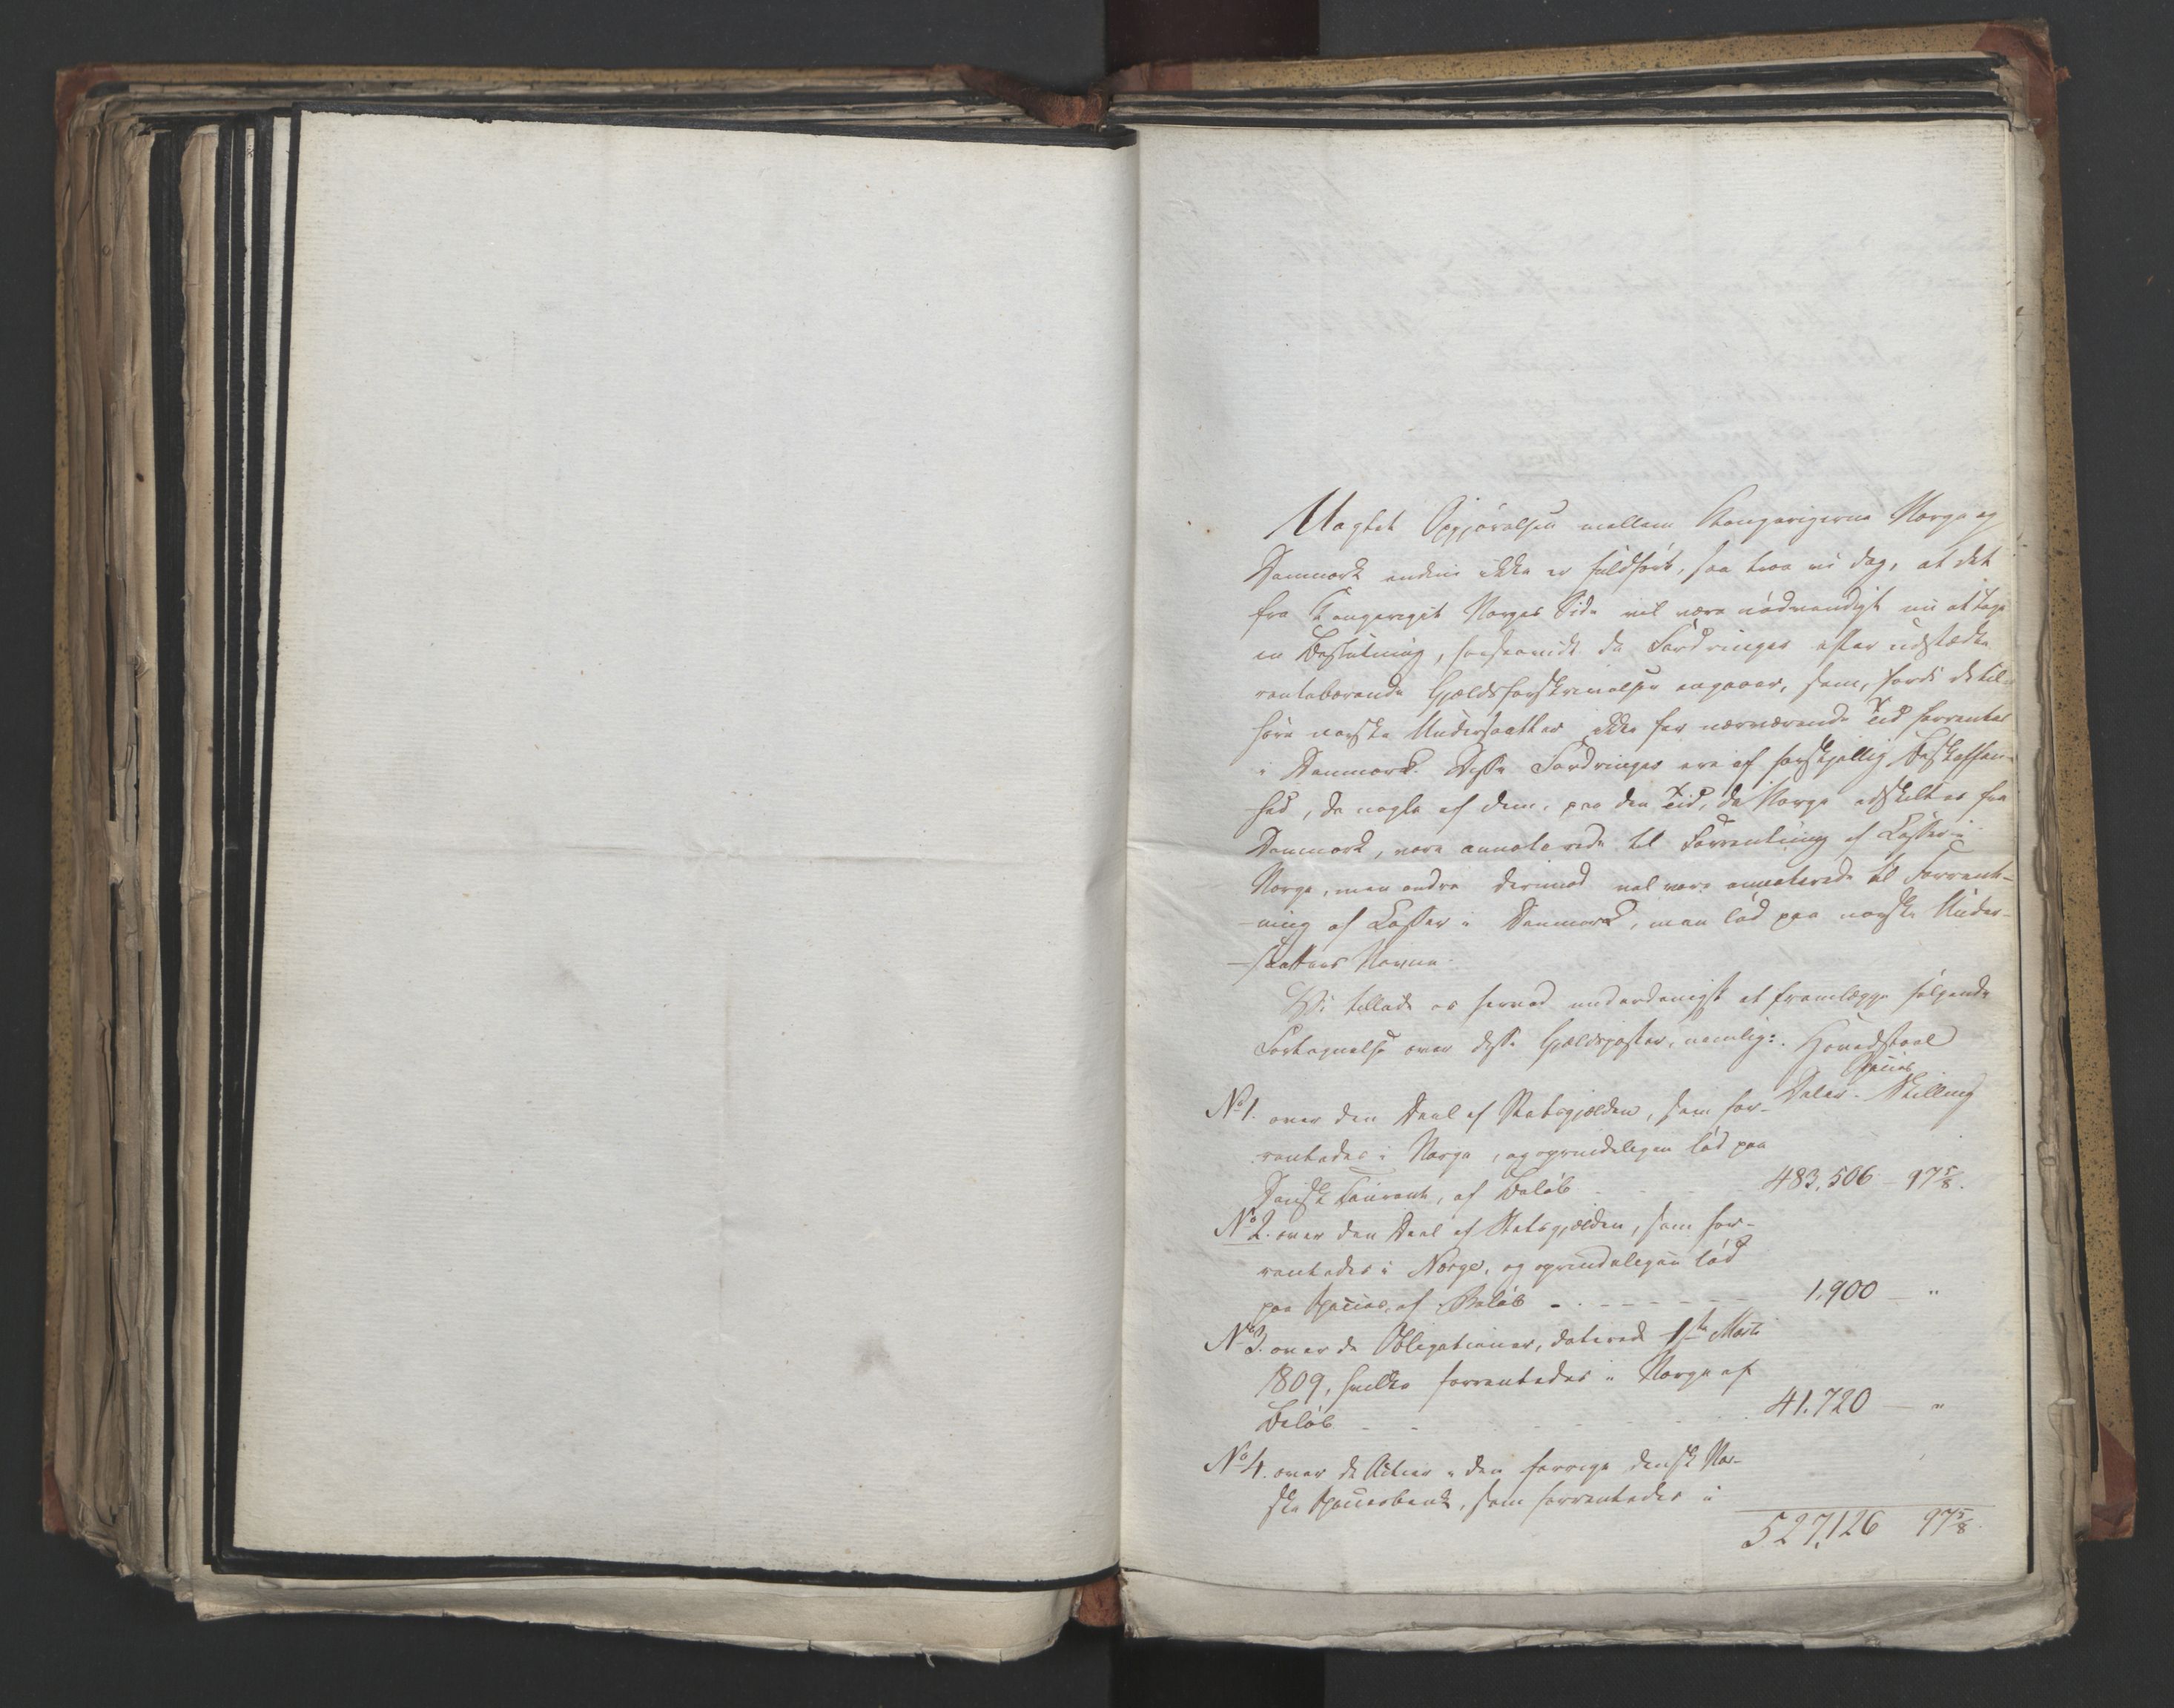 Uagtet Opgjørelsen mellem Kongerigerne Norge og
Danmark endnu ikke er fuldført, saa troe vi dog, at det
fra Kongeriget Norges Side vil være nødvendigt nu at tage
en Beslutning, forsaavidt de Fordringer efter udstædte
rentebærende Gjældsforskrivelser angaaer, som, fordi de til-
høre norske Undersaatter ikke for nærværende Tid forrentes
i Danmark. Disse Fordringer ere af forskjellig Beskaffen-
hed, da nogle af dem, paa den Tid, da Norge adskiltes fra
Danmark, vare annoterede til Forrentning af Casser i
Norge, men andre derimod vel vare annoterede til Forrent-
-ning af Casser i Danmark, men lød paa norske Under-
-saatters Navne.
Vi tillade os herved underdanigst at fremlægge følgende
Fortegnelse over disse Gjældsposter, nemlig: Hovedstoel
Species
Daler. Skilling
No 1. over den Deel af Statsgjælden, som for-
rentedes i Norge, og oprindeligen lød paa
Dansk Courant, af Beløb 483,506 – 97 5/8.
No 2. over den Deel af Statsgjælden, som for-
rentedes i Norge, og oprindeligen lød
paa Species, af Beløb - - - - - - 1,900 — "
No 3. over de Obligationer, daterede 1ste Marti
1809, hvilke forrentedes i Norge af
Beløb - - - - - - 41.720 — "
No 4. over de Actier i den forrige dansk Nor-
ske Speciesbank, som forrentedes i
527,126 97 5/8.